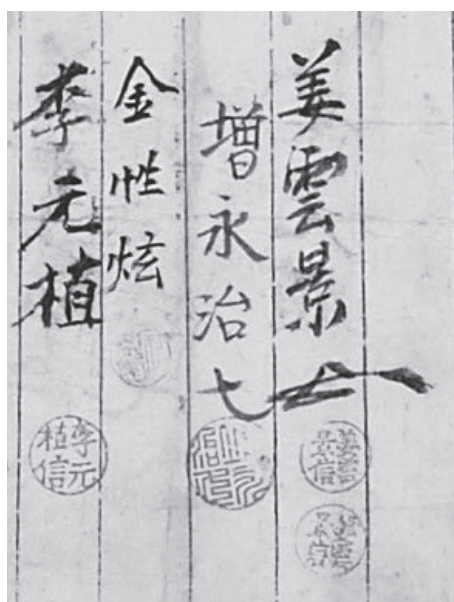 姜雲景
増永治七
金性炫
李元植
姜雲景信
李元植信